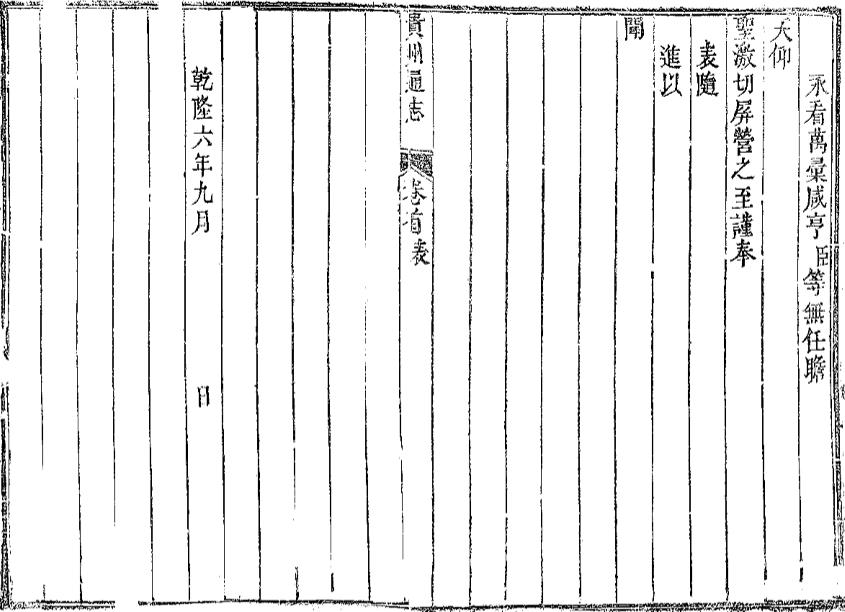 永看萬彙咸亨臣等無任瞻
天仰
聖激切屏營之至謹奉
表隨
進以
聞
貴州通志 卷首 表
乾隆六年九月 日